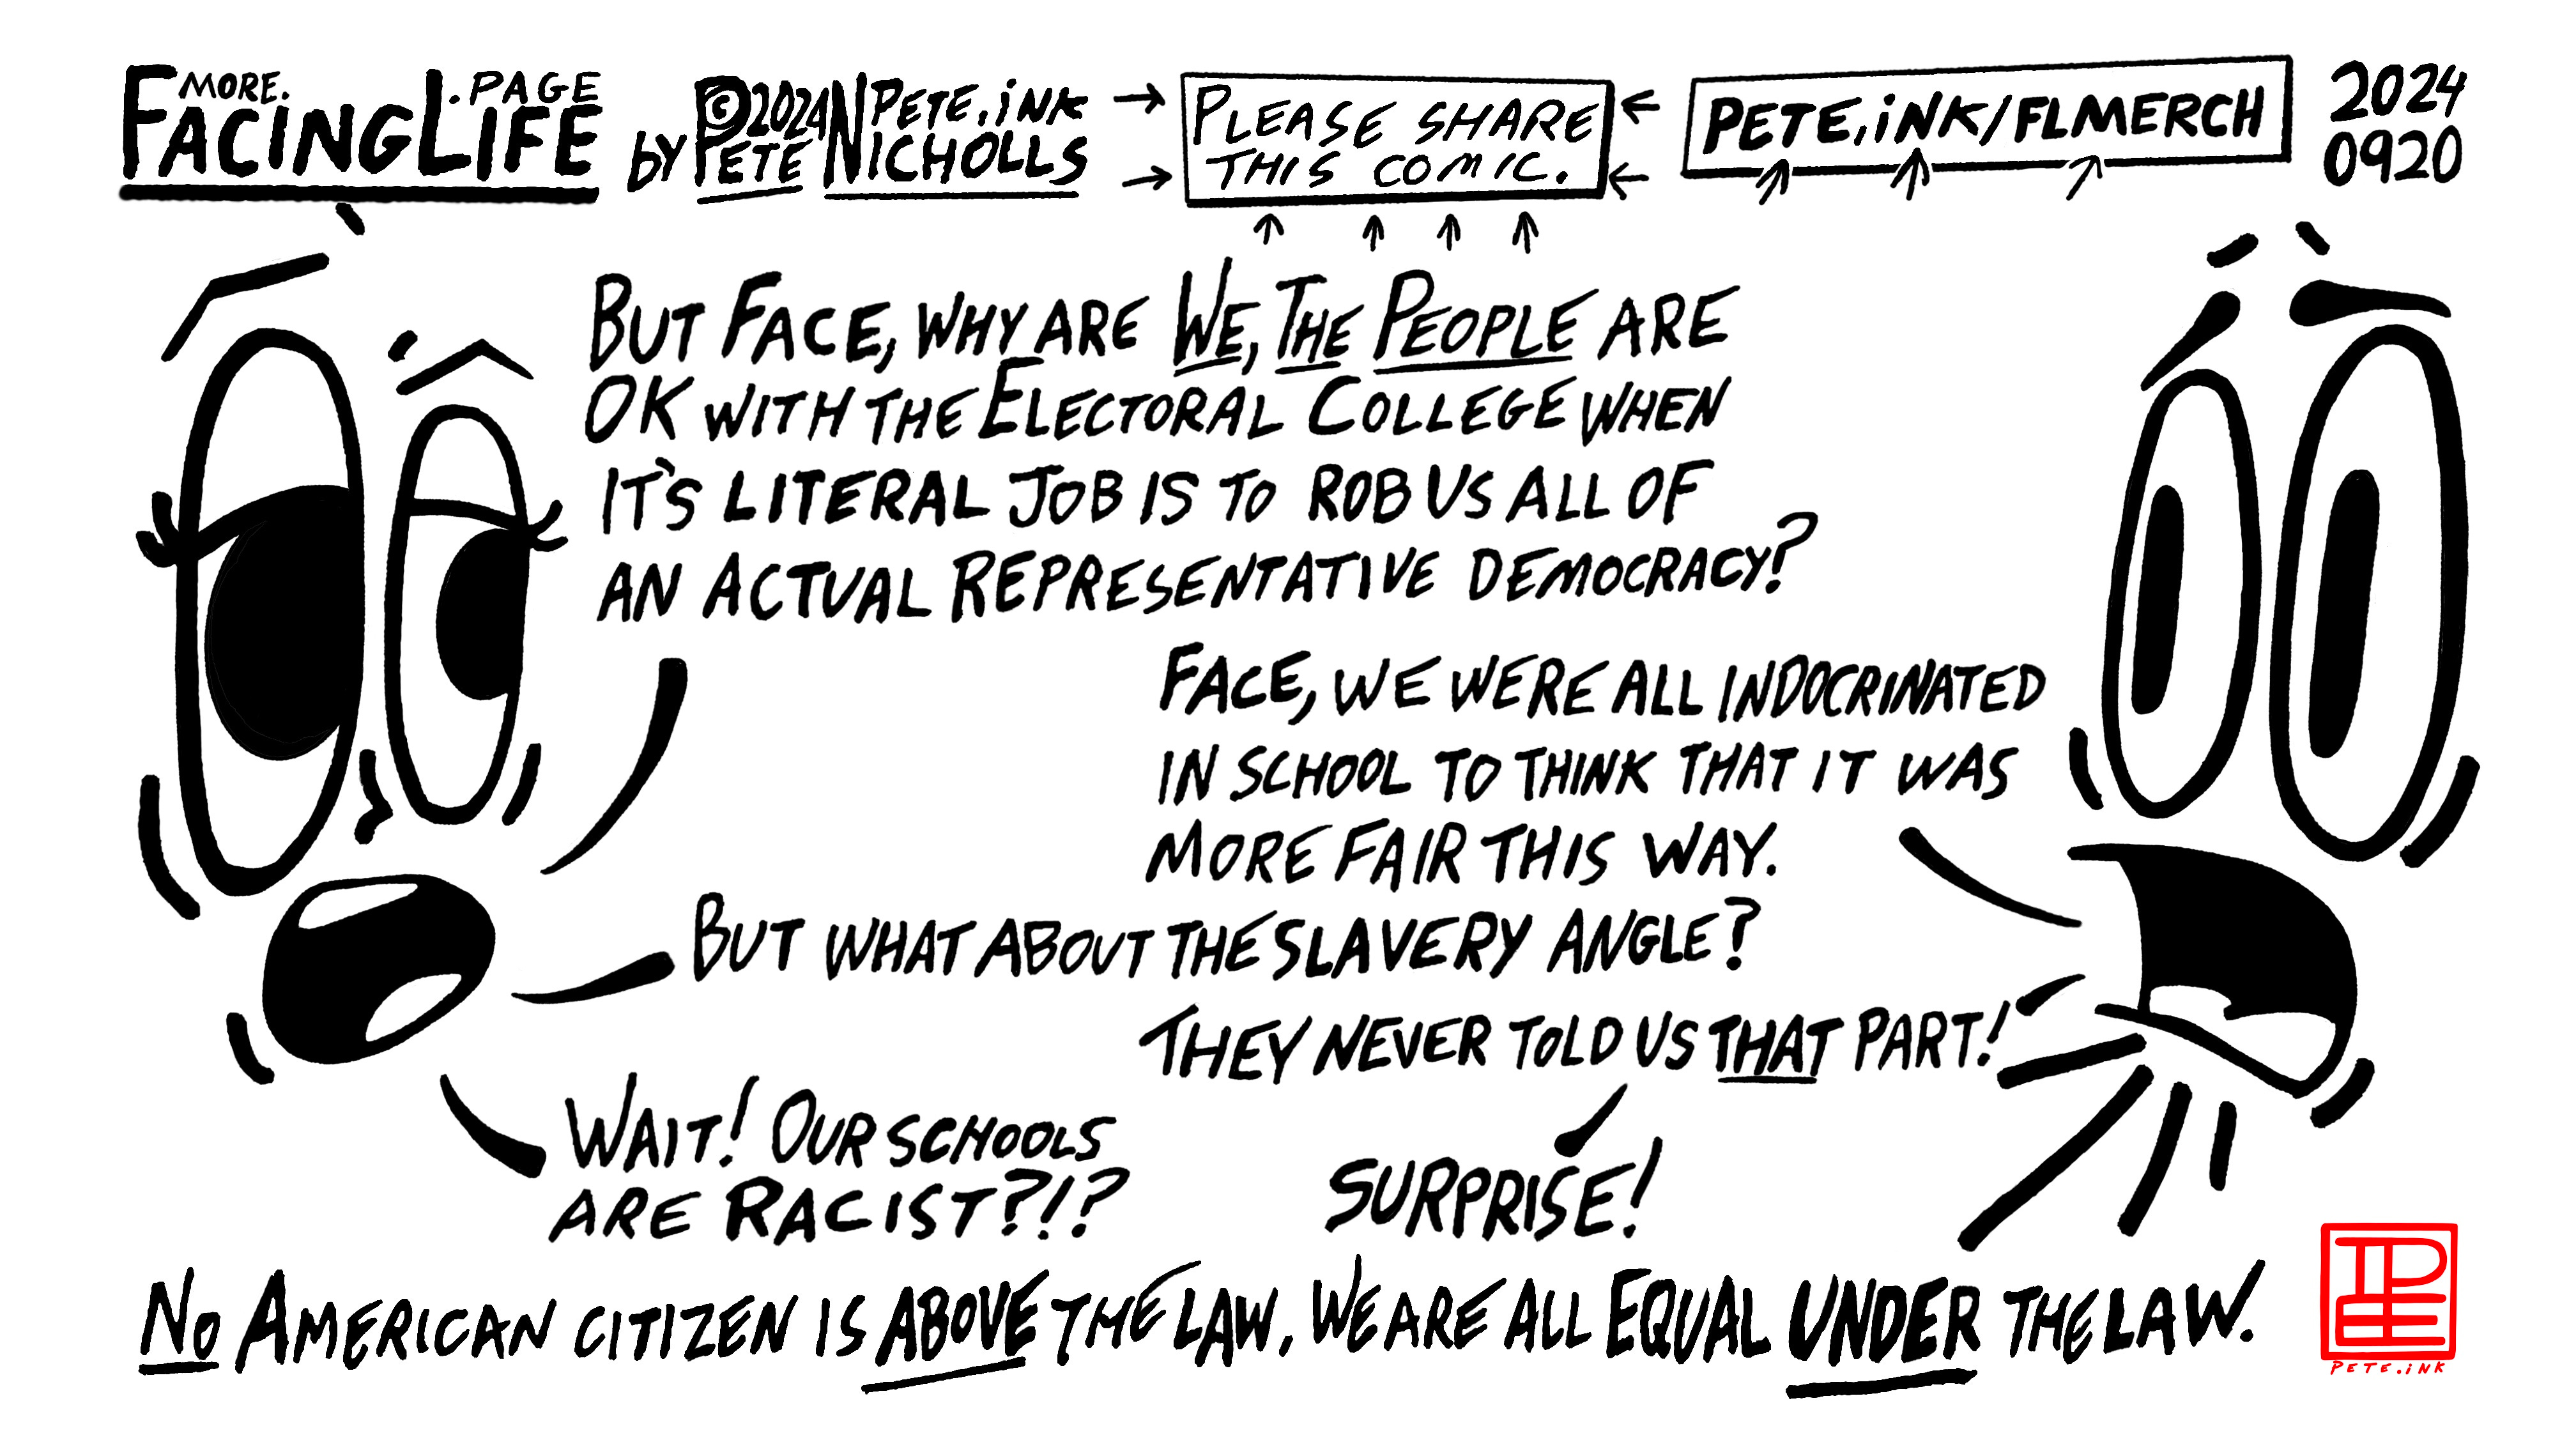 MORE. FACINGLIFE .PAGE
BY PETE NICHOLLS ©2024 PETE.iNK
PLEASE SHARE
THIS COMIC.
PETE.iNK/FLMERCH
2024
0920
BUT FACE, WHY ARE WE, THE PEOPLE ARE
OK WITH THE ELECTORAL COLLEGE WHEN
IT'S LITERAL JOB IS TO ROB US ALL OF
AN ACTUAL REPRESENTATIVE DEMOCRACY?
FACE, WE WERE ALL INDOCRINATED
IN SCHOOL TO THINK THAT IT WAS
MORE FAIR THIS WAY.
BUT WHAT ABOUT THE SLAVERY ANGLE?
THEY NEVER TOLD US THAT PART!
WAIT! OUR SCHOOLS
ARE RACIST?!?
SURPRISE!
NO AMERICAN CITIZEN IS ABOVE THE LAW. WE ARE ALL EQUAL UNDER THE LAW.
PETE.iNK